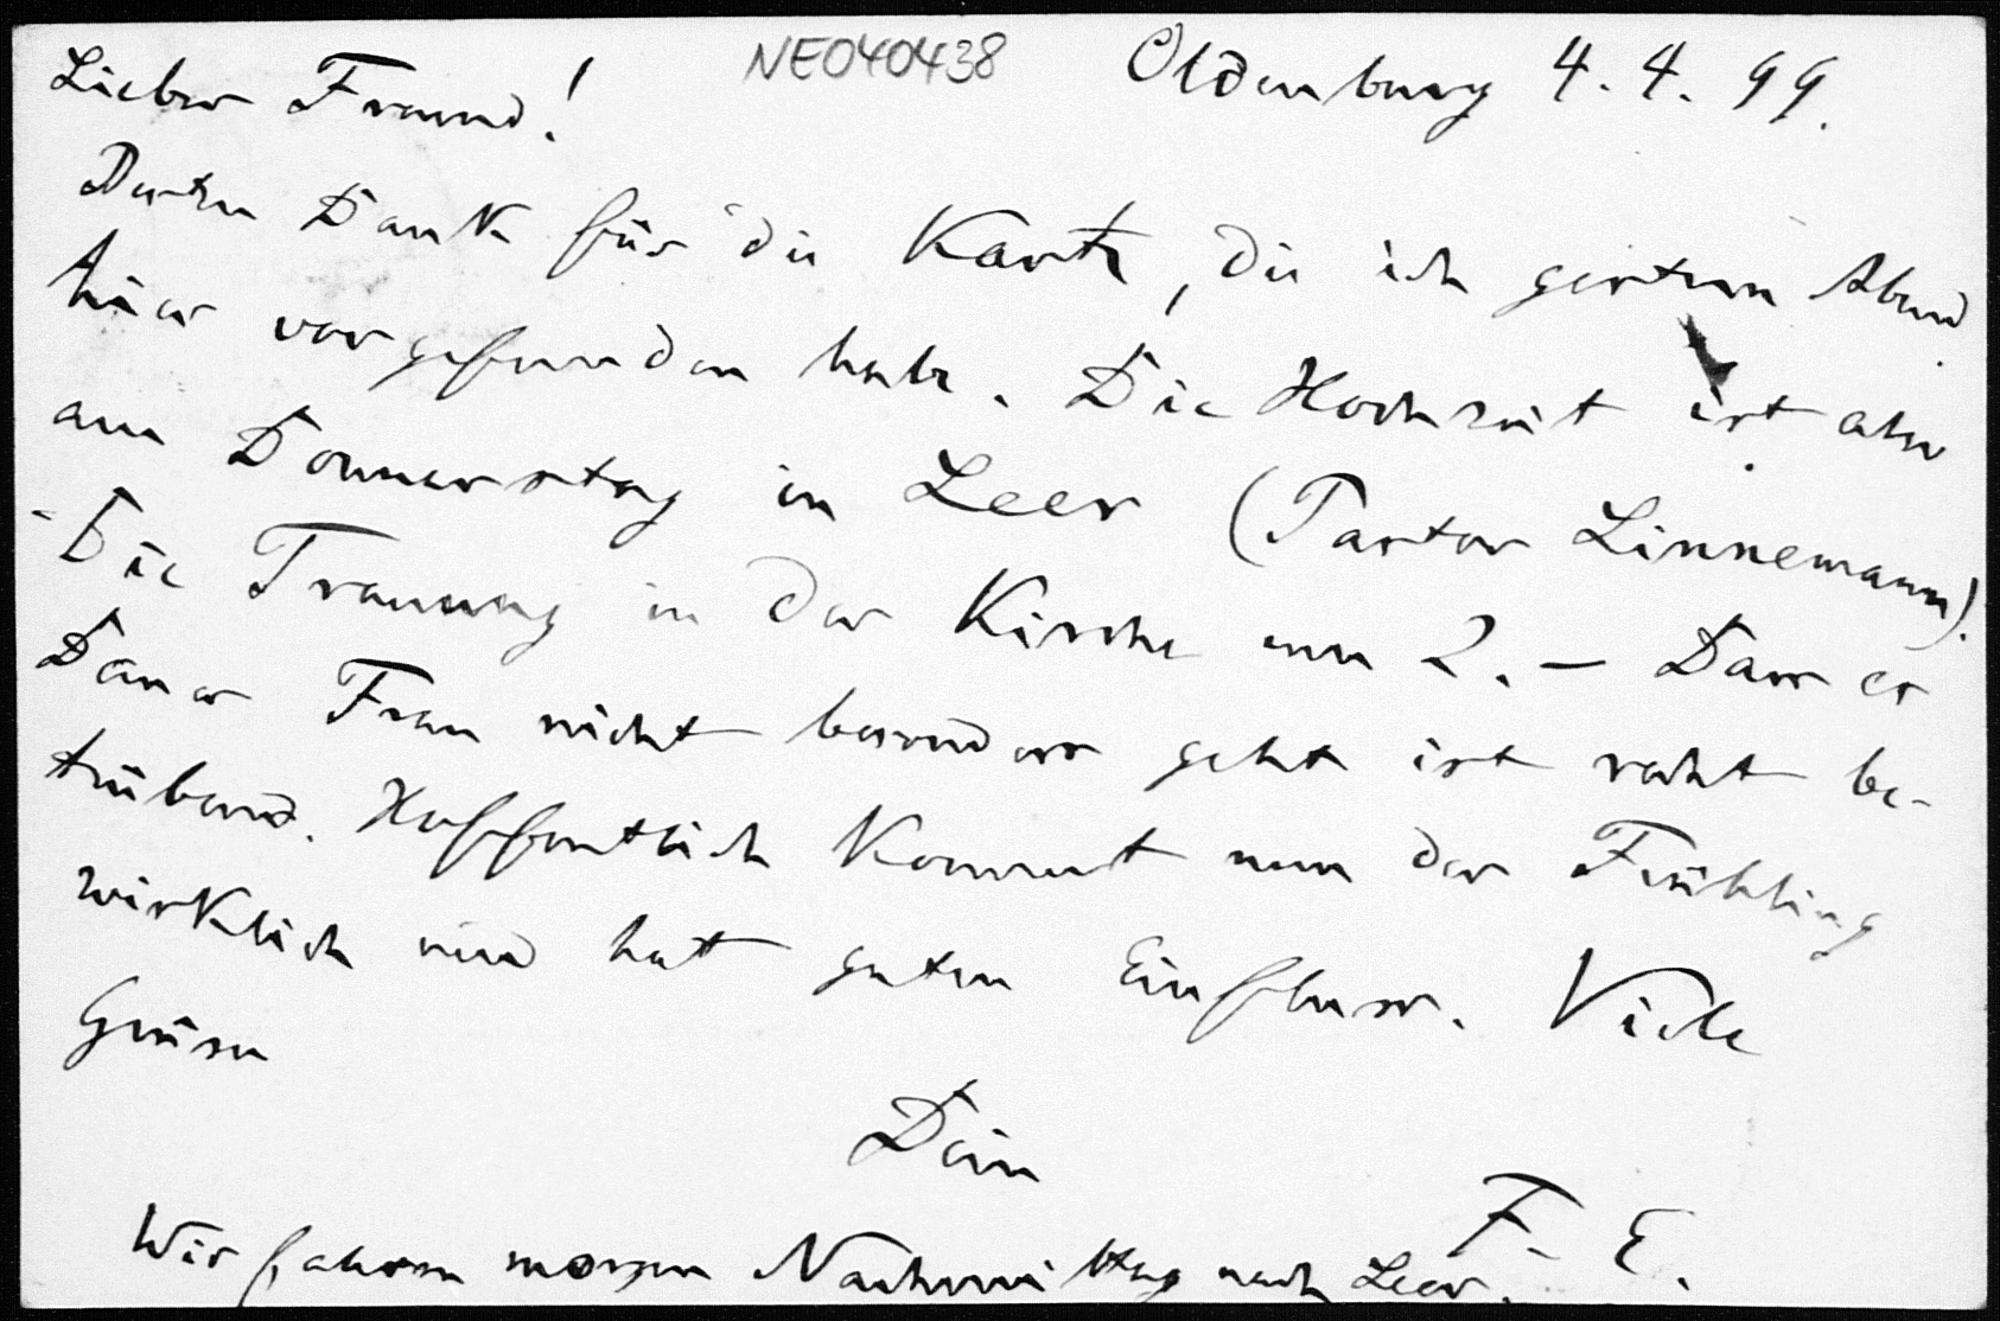 NE040438
Oldenburg 4. 4. 99.
Lieber Freund!
Besten Dank für die Karte, die ich gestern Abend
hier vorgefunden habe. Die Hochzeit ist also
am Donnerstag in Leer (Pastor Linnemann).
Die Trauung in der Kirche um 2. – Dass es
Deiner Frau nicht besonders geht ist recht be-
trübend. Hoffentlich kommt nun der Frühling
wirklich und hat guten Einfluss. Viele
Grüsse
Dein
F. E.
Wir fahren morgen Nachmittag nach Leer.